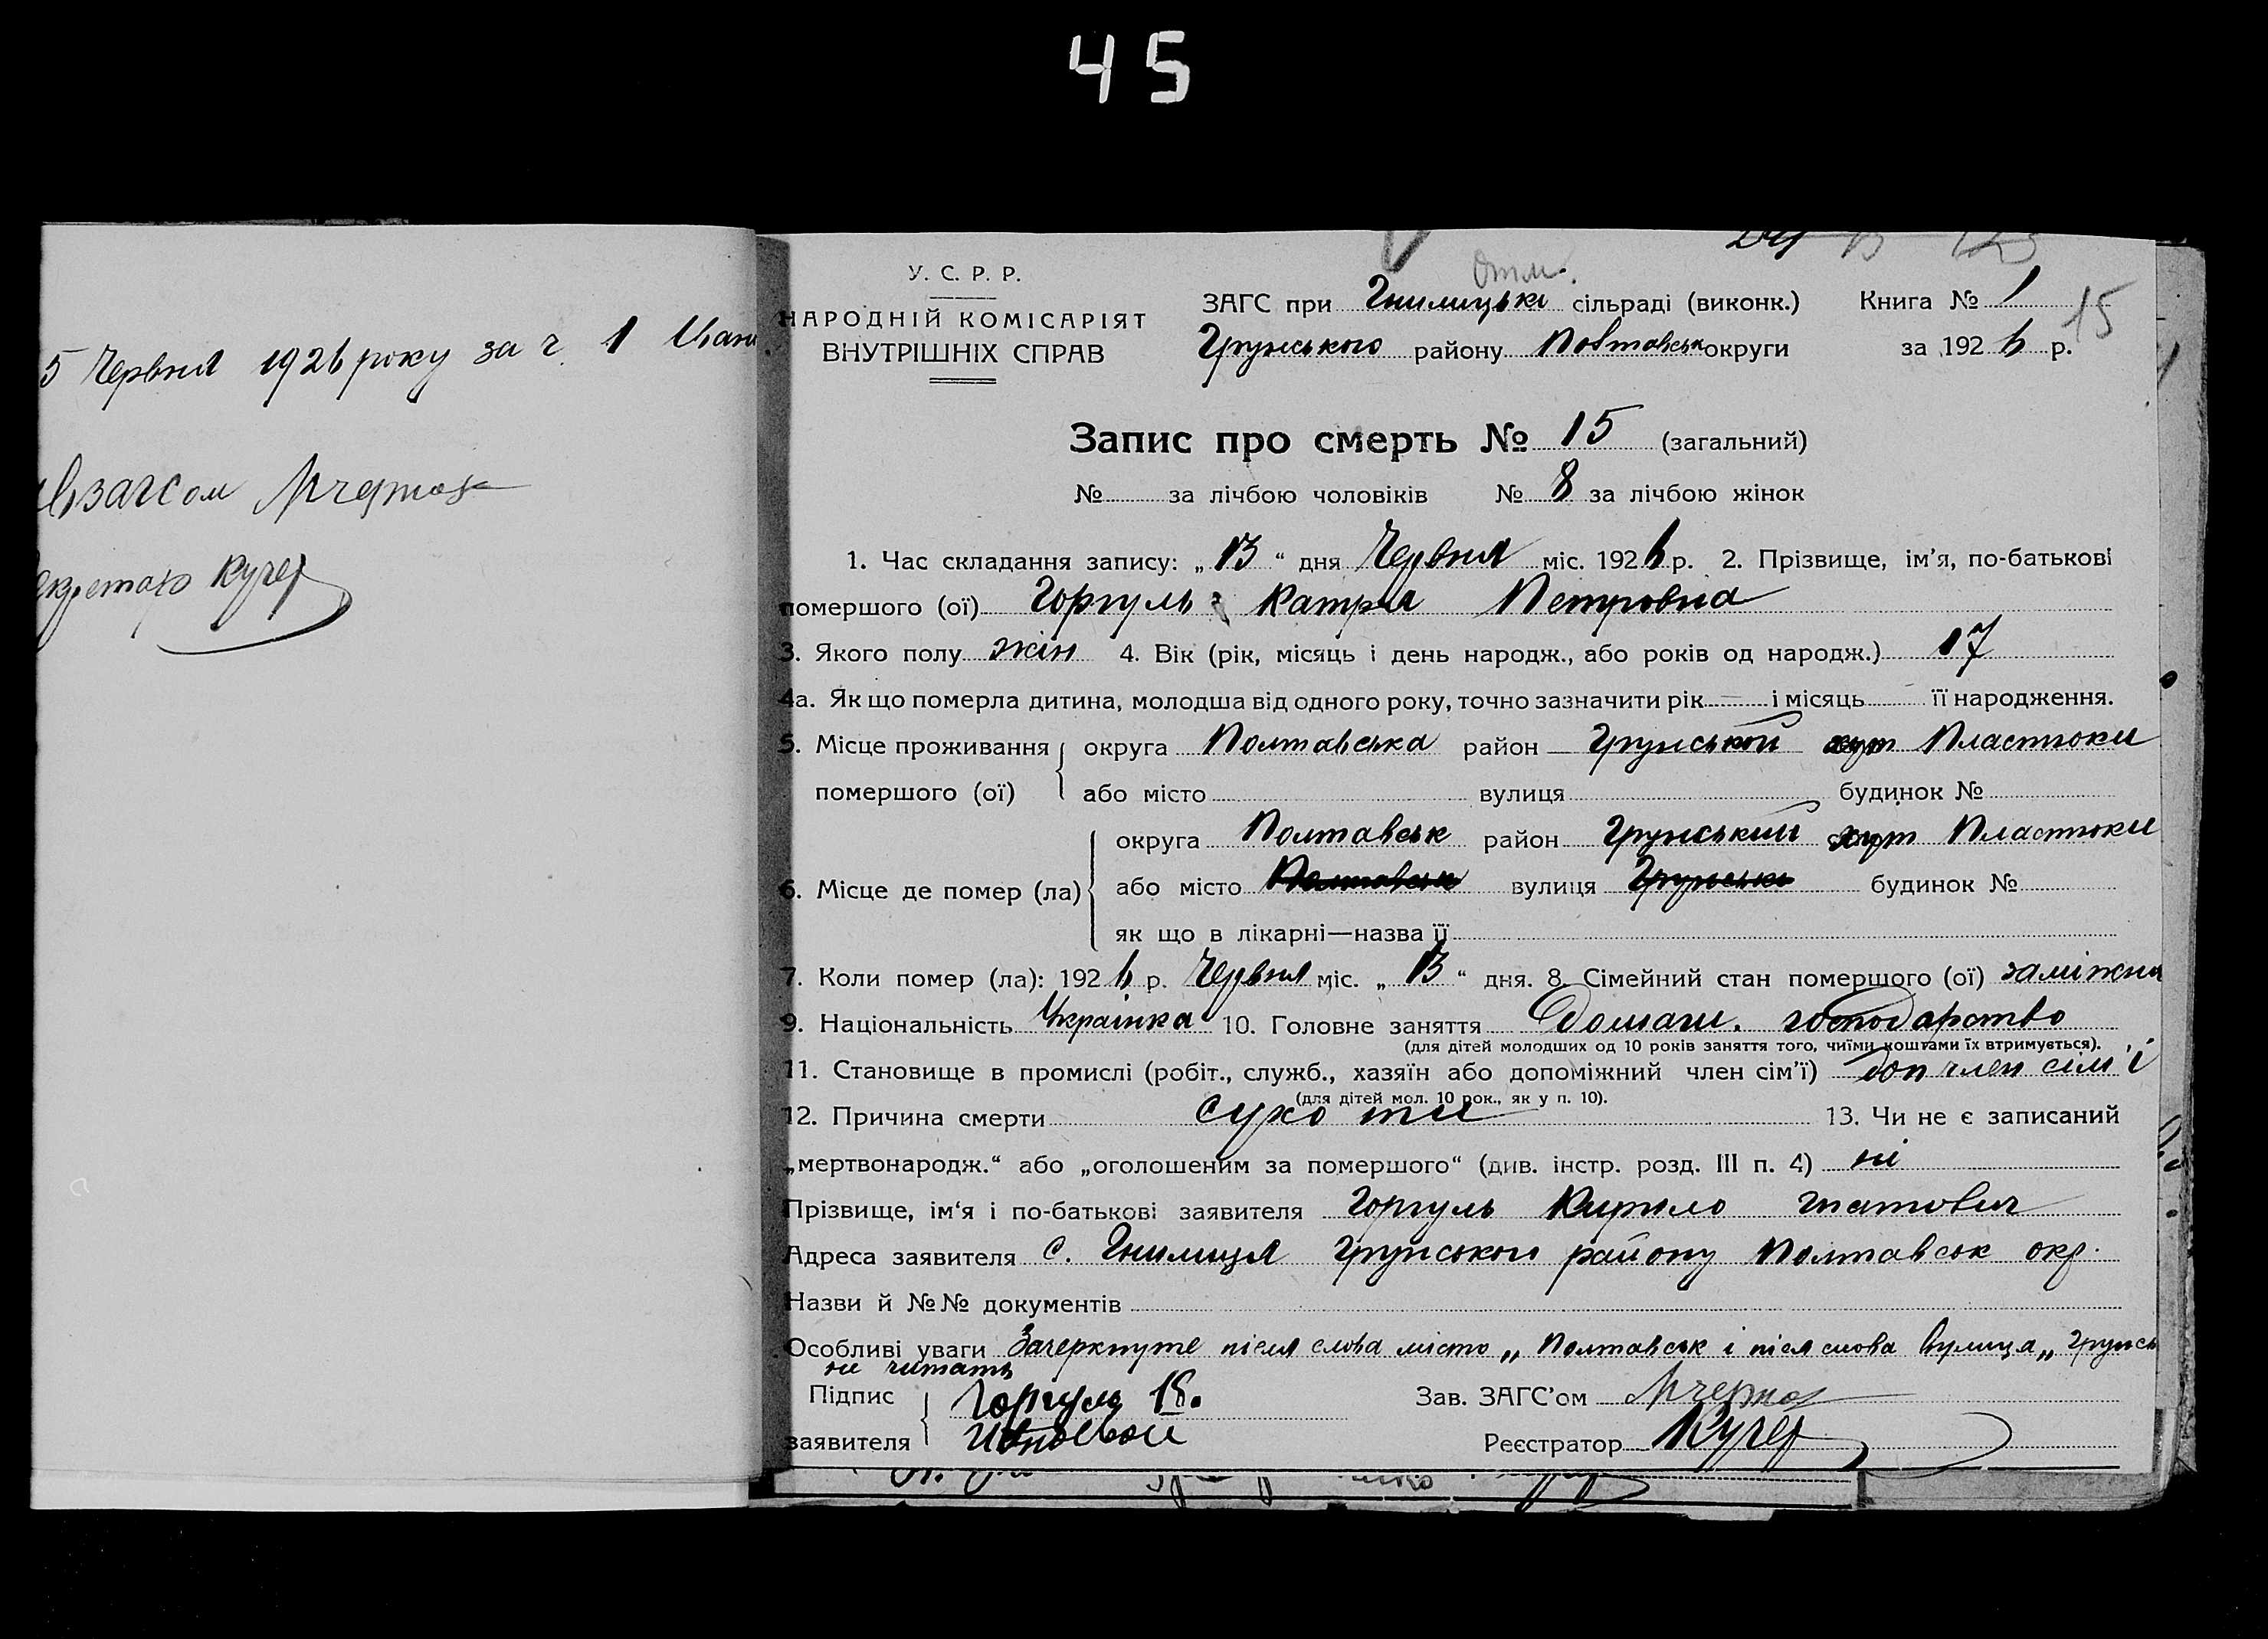 45
5 Червня 1926 року за ч. 1
взагсом
Кучер
У. С. Р. Р.
НАРОДНІЙ КОМІСАРІЯТ
ВНУТРІШНІХ СПРАВ
ЗАГС при Гнилицькі сільраді (виконк.) Книга № 1
15
Грунського району Повтавськ округи за 1926 р.
Запис про смерть № 15 (загальний)
№ за лічбою чоловіків № 8 за лічбою жінок
1. Час складання запису: „13“ дня Червня міс. 1926 р. 2. Прізвище, ім'я, по-батькові
помершого (ої) Горгуль Катря Петровна
3. Якого полу жін 4. Вік (рік, місяць і день народж., або років од народж.) 17
4а. Як що померла дитина, молодша від одного року, точно зазначити рік і місяць її народження.
5. Місце проживання округа Полтавська район Грунської хут Пластюки
помершого (ої) або місто вулиця будинок №
округа Полтавськ район Грунський хут Пластюки
6. Місце де помер (ла) або місто Полтавськ вулиця Грунськ будинок №
як що в лікарні—назва її
7. Коли помер (ла): 1926 р. Червня міс. „13“ дня. 8. Сімейний стан помершого (ої) заміжня
9. Національність Українка 10. Головне заняття Домашн. господарство
(для дітей молодших од 10 років заняття того, чиїми коштами їх втримується).
11. Становище в промислі (робіт., служб., хазяїн або допоміжний член сім'ї) доп член сім'ї
(для дітей мол. 10 рок., як у п. 10).
12. Причина смерти сухоти 13. Чи не є записаний
„мертвонародж.“ або „оголошеним за помершого“ (див. інстр. розд. III п. 4) ні
Прізвище, ім'я і по-батькові заявителя Горгуль Кирило
Адреса заявителя с. Гнилиця Грунського району Полтавськ окр.
Назви й №№ документів
Особливі уваги Зачеркнуте після слова місто „Полтавськ і після слова вулиця„ Грунськ
не читать
Підпис Горгуль Зав. ЗАГС'ом
заявителя Реєстратор Кучер